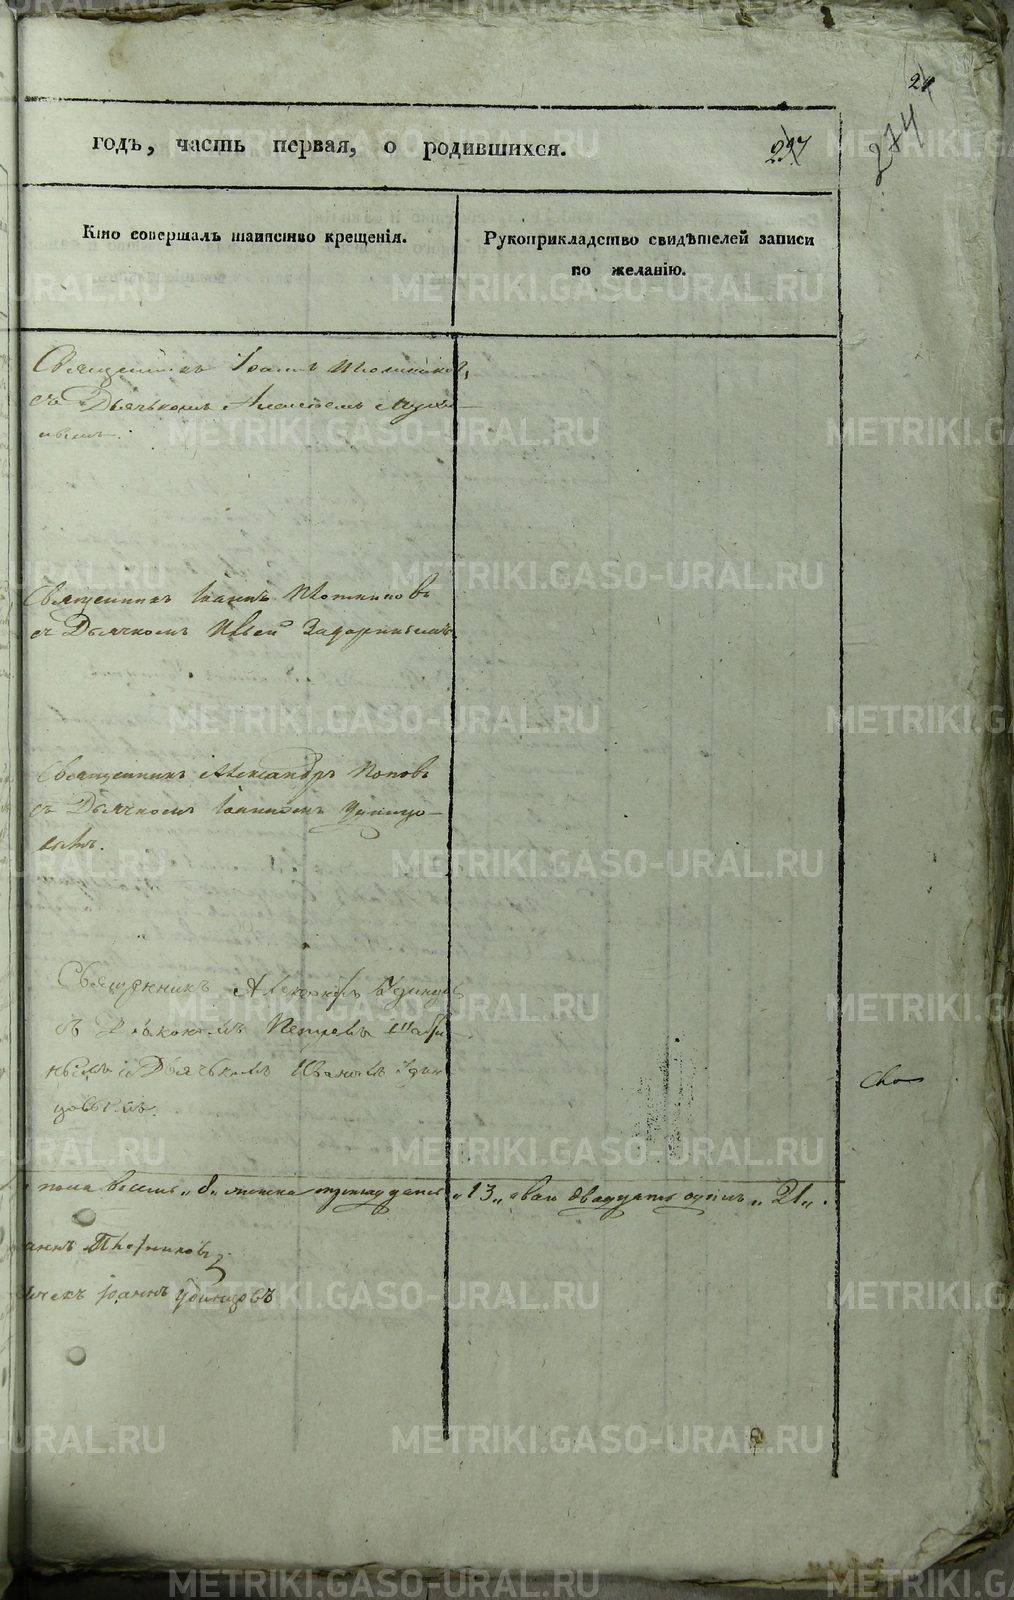 274
годъ, часть первая, о родившихся.
Кто совершалъ таинство крещенія.
Рукоприкладство свидѣтелей записи
по желанію.
Священникъ Іоаннъ
съ Дьячкомъ
Священникъ Іоаннъ Плотниковъ
съ Дьячкомъ Задоринымъ
Священникъ Александръ Поповъ
съ Дьячкомъ Іоанномъ Удинцо-
вымъ.
Священникъ Александръ Удинцовъ
съ Діакономъ
нымъ и Дьячкомъ Иваномъ Удин
цовымъ.
пола восемь „8„ женска тринадцать „13„ двадцать одинъ „21„.
аннъ Плотниковъ
ячекъ Іоаннъ Удинцовъ
METRIKI.GASO-URAL.RU